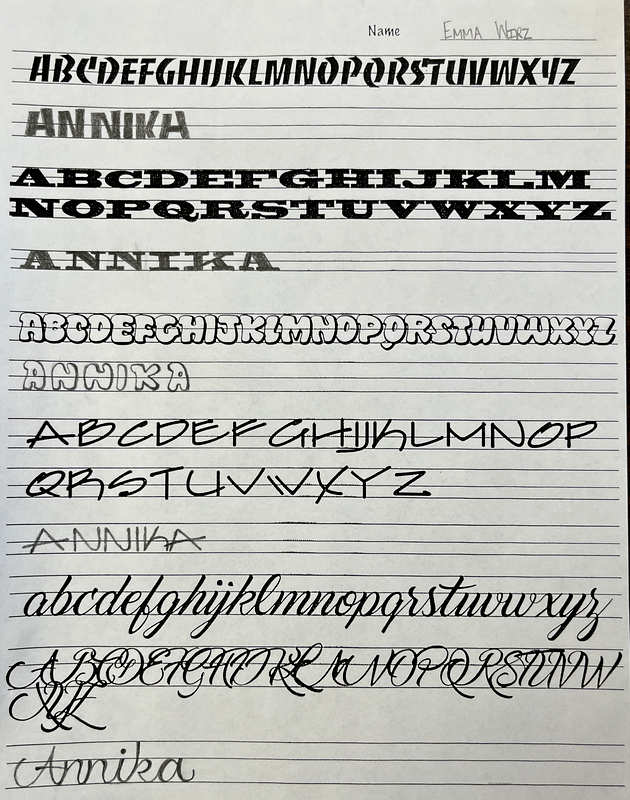 Name EMMA WIRZ
ABCDEFGHIJKLMNOPQRSTUVWXYZ
ANNIKA
ABCDEFGHIJKLM
NOPQRSTUVWXYZ
ANNIKA
ABCDEFGHIJKLMNOPQRSTUVWXYZ
ANNIKA
ABCDEFGHIJKLMNOP
QRSTUVWXYZ
ANNIKA
abcdefghijklmnopqrstuvwxyz
ABCDEFGHIJKLMNOPQRSTUVW
XYZ
Annika